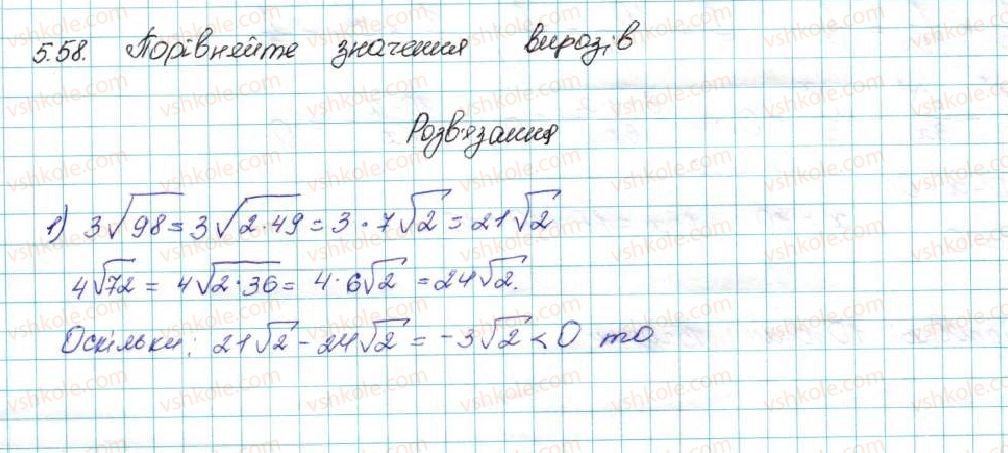 5.58. Порівняйте значення виразів
Розв'язання
1) 3√98 = 3√2·49 = 3·7√2 = 21√2
4√72 = 4√2·36 = 4·6√2 = 24√2.
Оскільки: 21√2 - 24√2 = -3√2 < 0 то